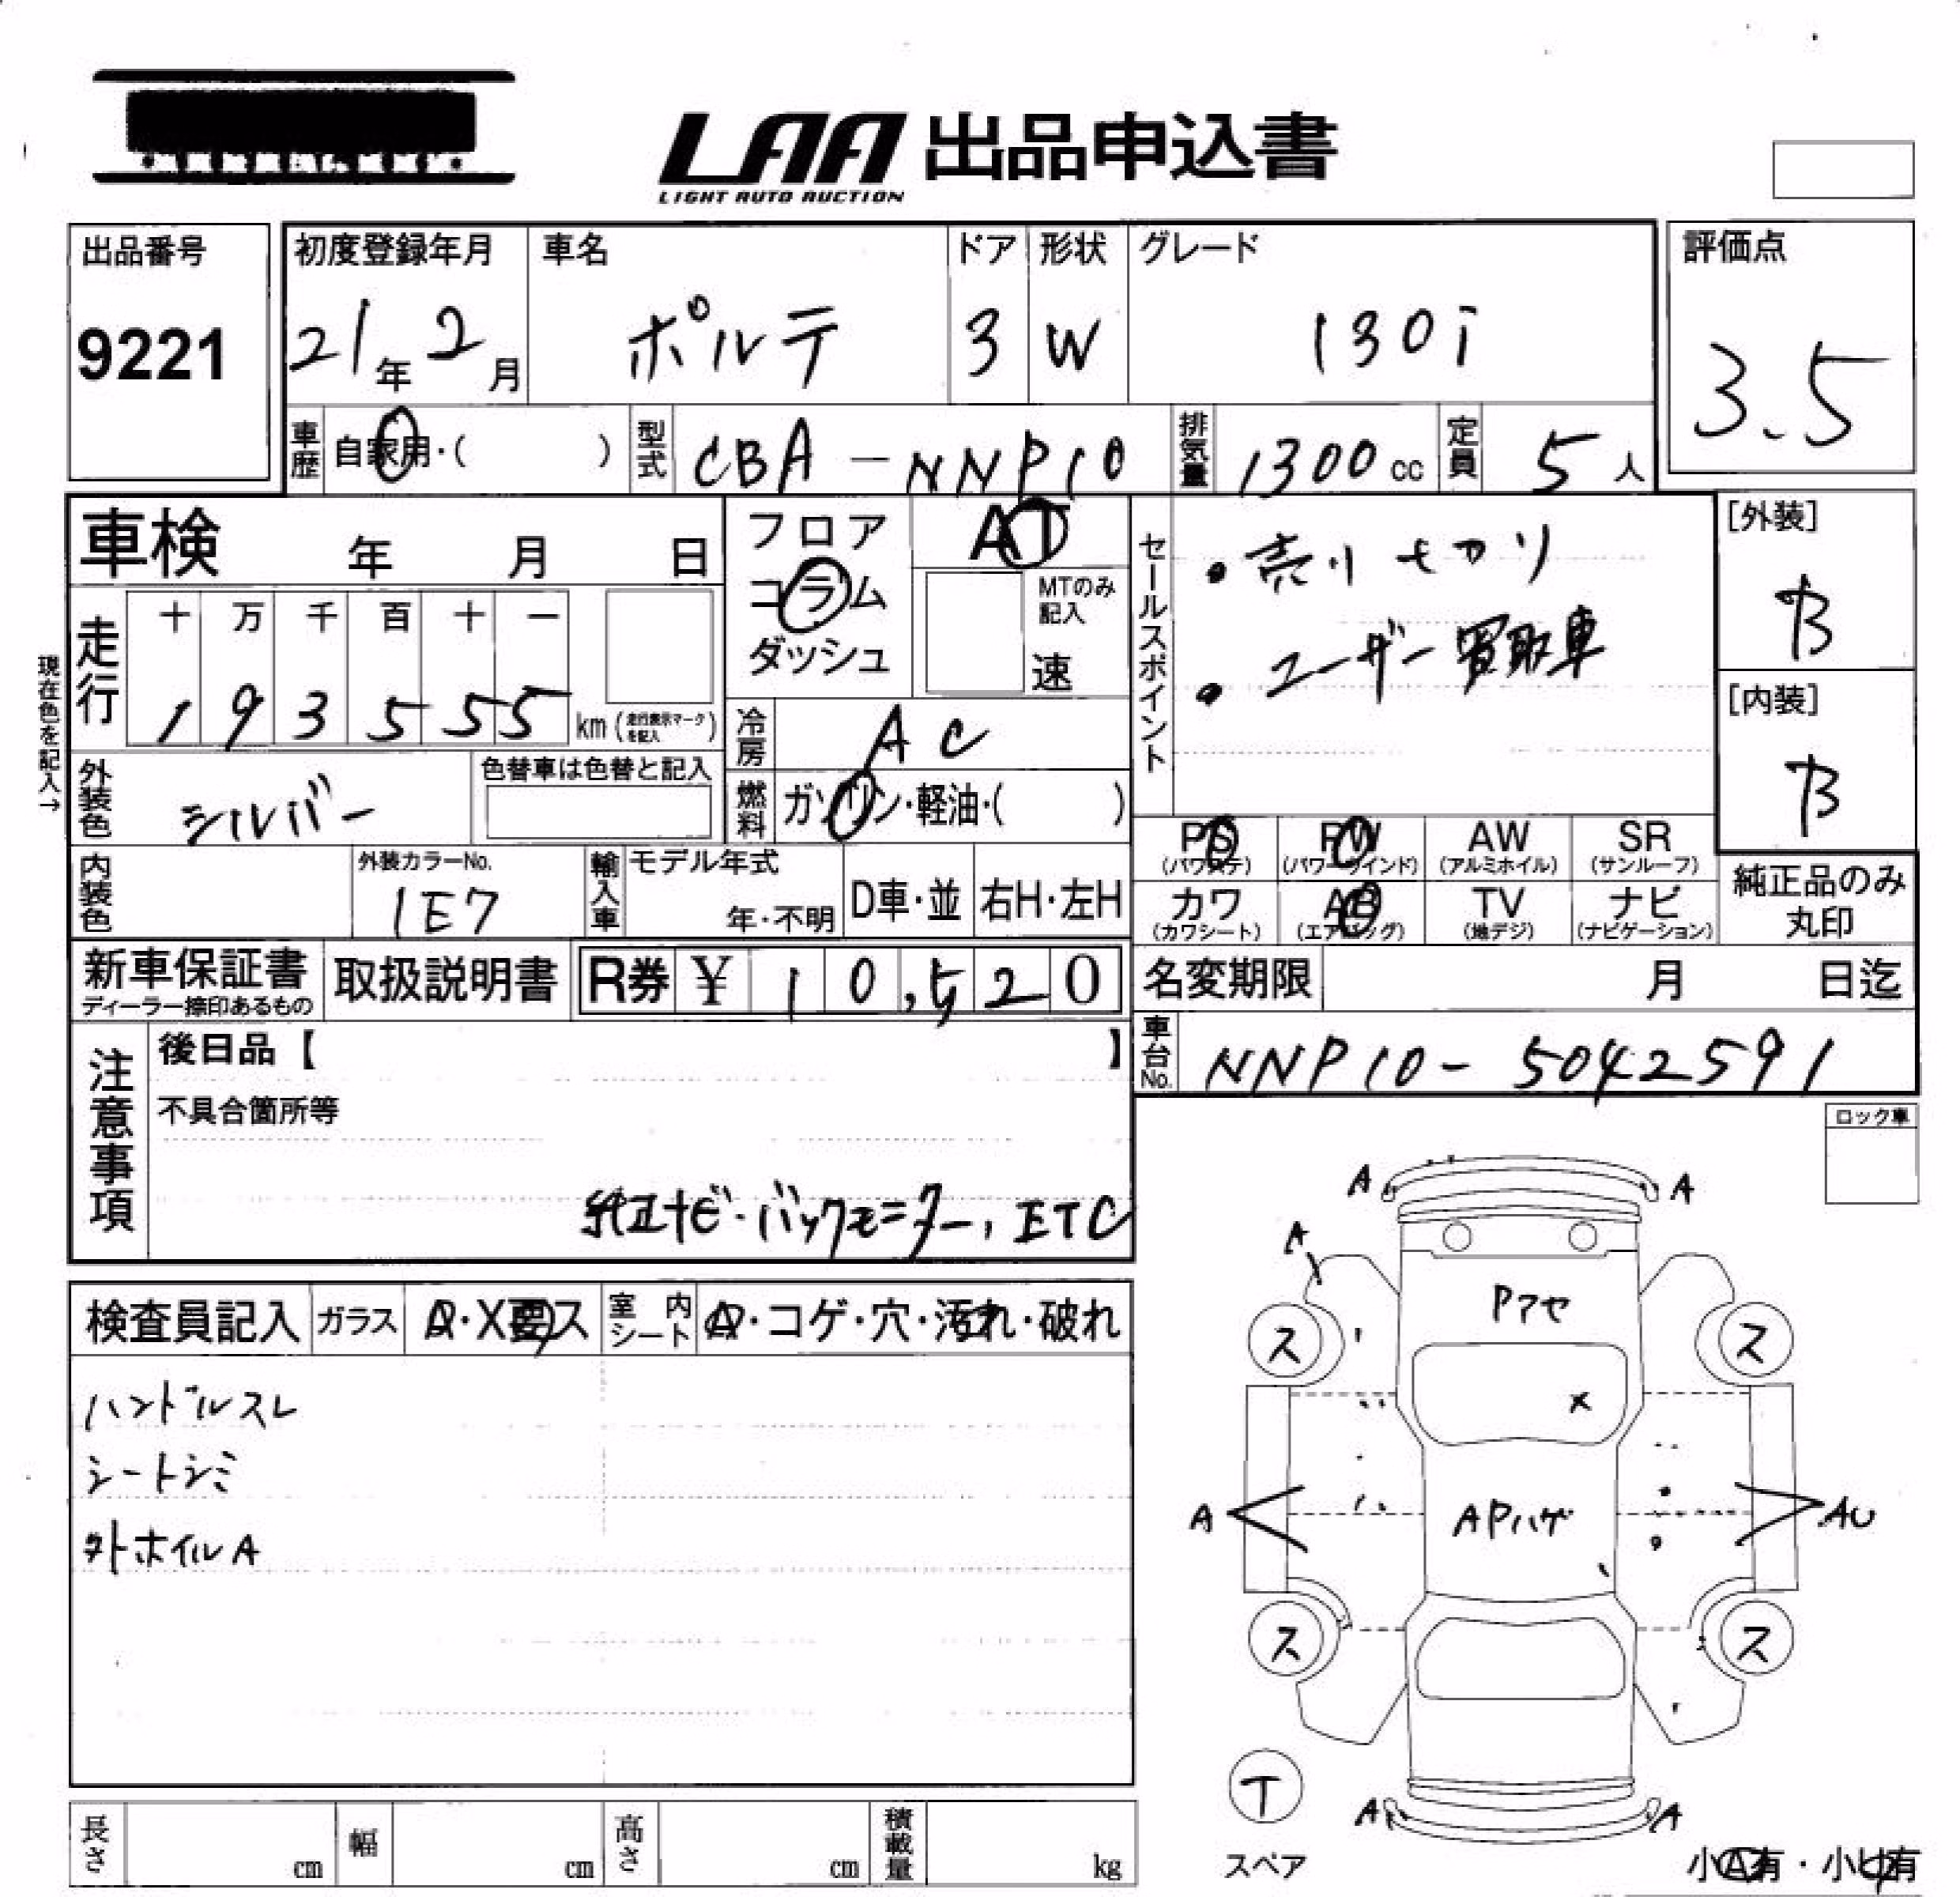 LAA 出品申込書
LIGHT AUTO AUCTION
出品番号
9221
初度登録年月
21年 2月
車名
ポルテ
ドア
3
形状
W
グレード
130i
評価点
3.5
車歴 自家用・( )
型式 CBA-NNP10
排気量 1300 cc
定員 5人
車検 年 月 日
フロア
コラム
ダッシュ
AT
MTのみ
記入
速
セールスポイント
・売り切り
・ユーザー買取車
[外装]
B
[内装]
B
現在色を記入→
走行
十 万 千 百 十 一
1 9 3 5 5 5 km (走行表示マークを記入)
冷房 AC
燃料 ガソリン・軽油・( )
外装色 シルバー
色替車は色替と記入
内装色
外装カラーNo.
1E7
輸入車 モデル年式
年・不明
D車・並 右H・左H
PS
(パワステ)
PW
(パワーウインド)
AW
(アルミホイル)
SR
(サンルーフ)
カワ
(カワシート)
AB
(エアバッグ)
TV
(地デジ)
ナビ
(ナビゲーション)
純正品のみ
丸印
新車保証書
ディーラー捺印あるもの
取扱説明書
R券 ¥ 10,520
名変期限 月 日迄
車台No. NNP10-5042591
注意事項
後日品【 】
不具合箇所等
純正ナビ・バックモニター, ETC
ロック車
検査員記入 ガラス A・X要ス 室内シート A・コゲ・穴・汚れ・破れ
ハンドルスレ
シートシミ
外ホイルA
A A
A
Pアセ
ス ス
X
A APハゲ AU
ス ス
T
スペア
A A
小A有・小U有
長さ cm 幅 cm 高さ cm 積載量 kg